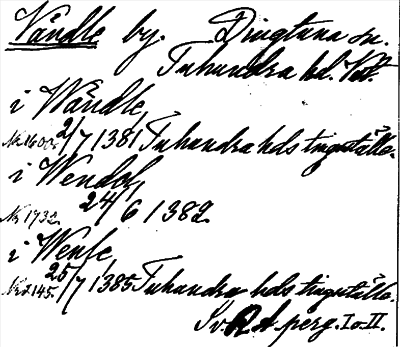 Vändle by. Dingtuna sn.
Tuhundra hd. Vstl.
i Wändle
Nr 1600. 2/7 1381 Tuhundra hds tingställe.
i Wendel
Nr 1732. 24/6 1382.
i Wenle
Nr 2145. 25/7 1385 Tuhundra hds tingställe.
Sv. R. A. perg. I o. II.